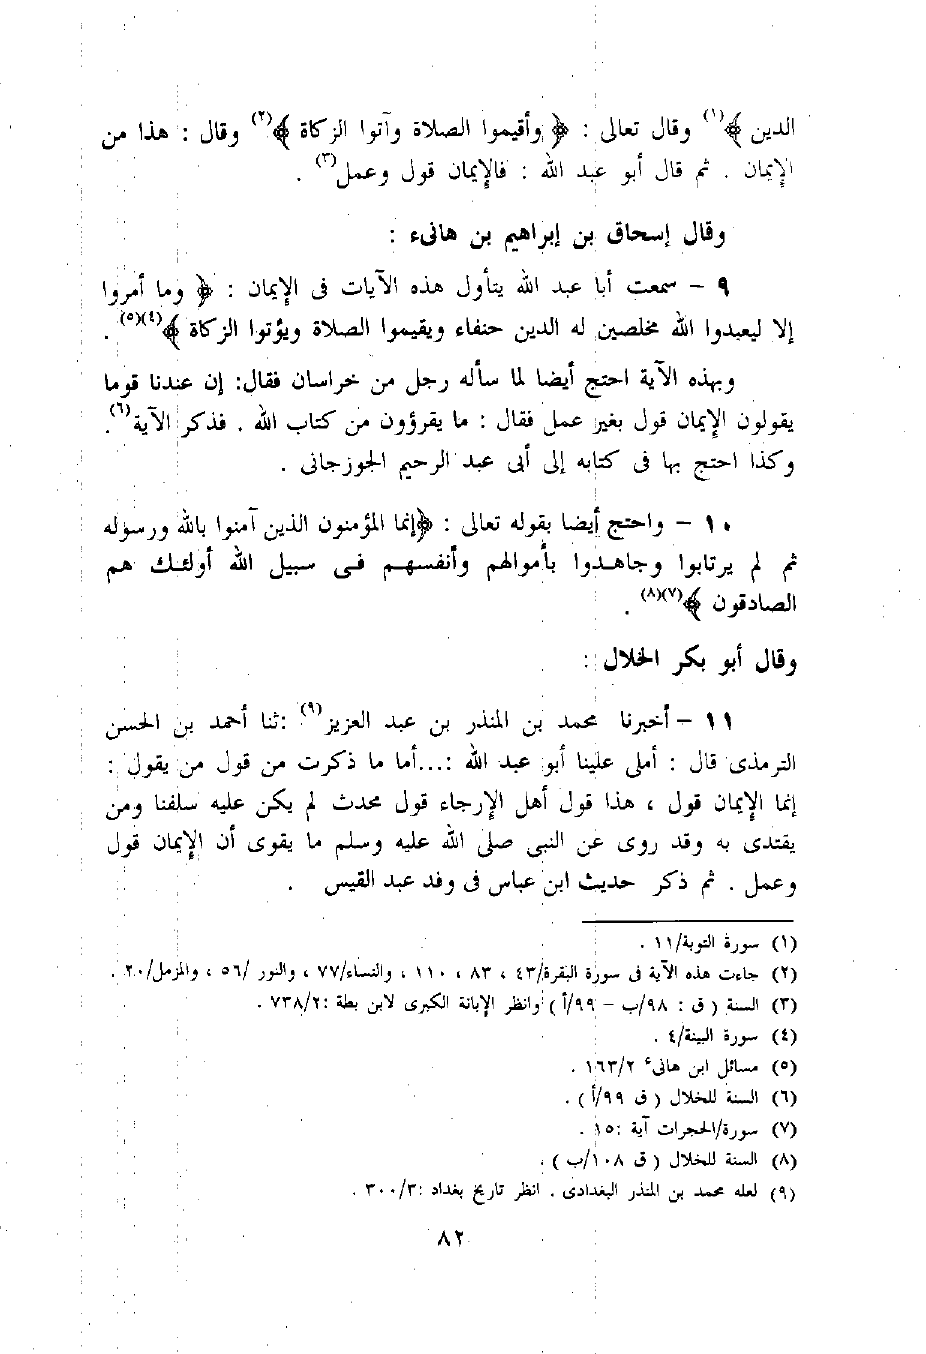 الدين ﴾(١) وقال تعالى : ﴿ وأقيموا الصلاة وآتوا الزكاة ﴾(٢) وقال : هذا من
الإيمان . ثم قال أبو عبد الله : فالإيمان قول وعمل(٣) .
وقال إسحاق بن إبراهيم بن هانىء :
٩ – سمعت أبا عبد الله يتأول هذه الآيات فى الإيمان : ﴿ وما أمروا
إلا ليعبدوا الله مخلصين له الدين حنفاء ويقيموا الصلاة ويؤتوا الزكاة ﴾(٤)(٥) .
وبهذه الآية احتج أيضا لما سأله رجل من خراسان فقال: إن عندنا قوما
يقولون الإيمان قول بغير عمل فقال : ما يقرؤون من كتاب الله . فذكر الآية(٦).
وكذا احتج بها فى كتابه إلى أبى عبد الرحيم الجوزجانى .
١٠ – واحتج أيضا بقوله تعالى : ﴿إنما المؤمنون الذين آمنوا بالله ورسوله
ثم لم يرتابوا وجاهدوا بأموالهم وأنفسهم فى سبيل الله أولئك هم
الصادقون ﴾(٧)(٨) .
وقال أبو بكر الخلال :
١١ – أخبرنا محمد بن المنذر بن عبد العزيز(٩) :ثنا أحمد بن الحسن
الترمذى قال : أملى علينا أبو عبد الله :...أما ما ذكرت من قول من يقول :
إنما الإيمان قول ، هذا قول أهل الإرجاء قول محدث لم يكن عليه سلفنا ومن
يقتدى به وقد روى عن النبى صلى الله عليه وسلم ما يقوى أن الإيمان قول
وعمل . ثم ذكر حديث ابن عباس فى وفد عبد القيس .
(١) سورة التوبة/١١ .
(٢) جاءت هذه الآية فى سورة البقرة/٤٣ ، ٨٣ ، ١١٠ ، والنساء/٧٧ ، والنور /٥٦ ، والمزمل/٢٠ .
(٣) السنة ( ق : ٩٨/ب – ٩٩/أ ) وانظر الإبانة الكبرى لابن بطة :٧٣٨/٢ .
(٤) سورة البينة/٤ .
(٥) مسائل ابن هانىء ١٦٣/٢ .
(٦) السنة للخلال ( ق ٩٩/أ ) .
(٧) سورة/الحجرات آية :١٥ .
(٨) السنة للخلال ( ق ١٠٨/ب ) .
(٩) لعله محمد بن المنذر البغدادى . انظر تاريخ بغداد :٣٠٠/٣ .
٨٢